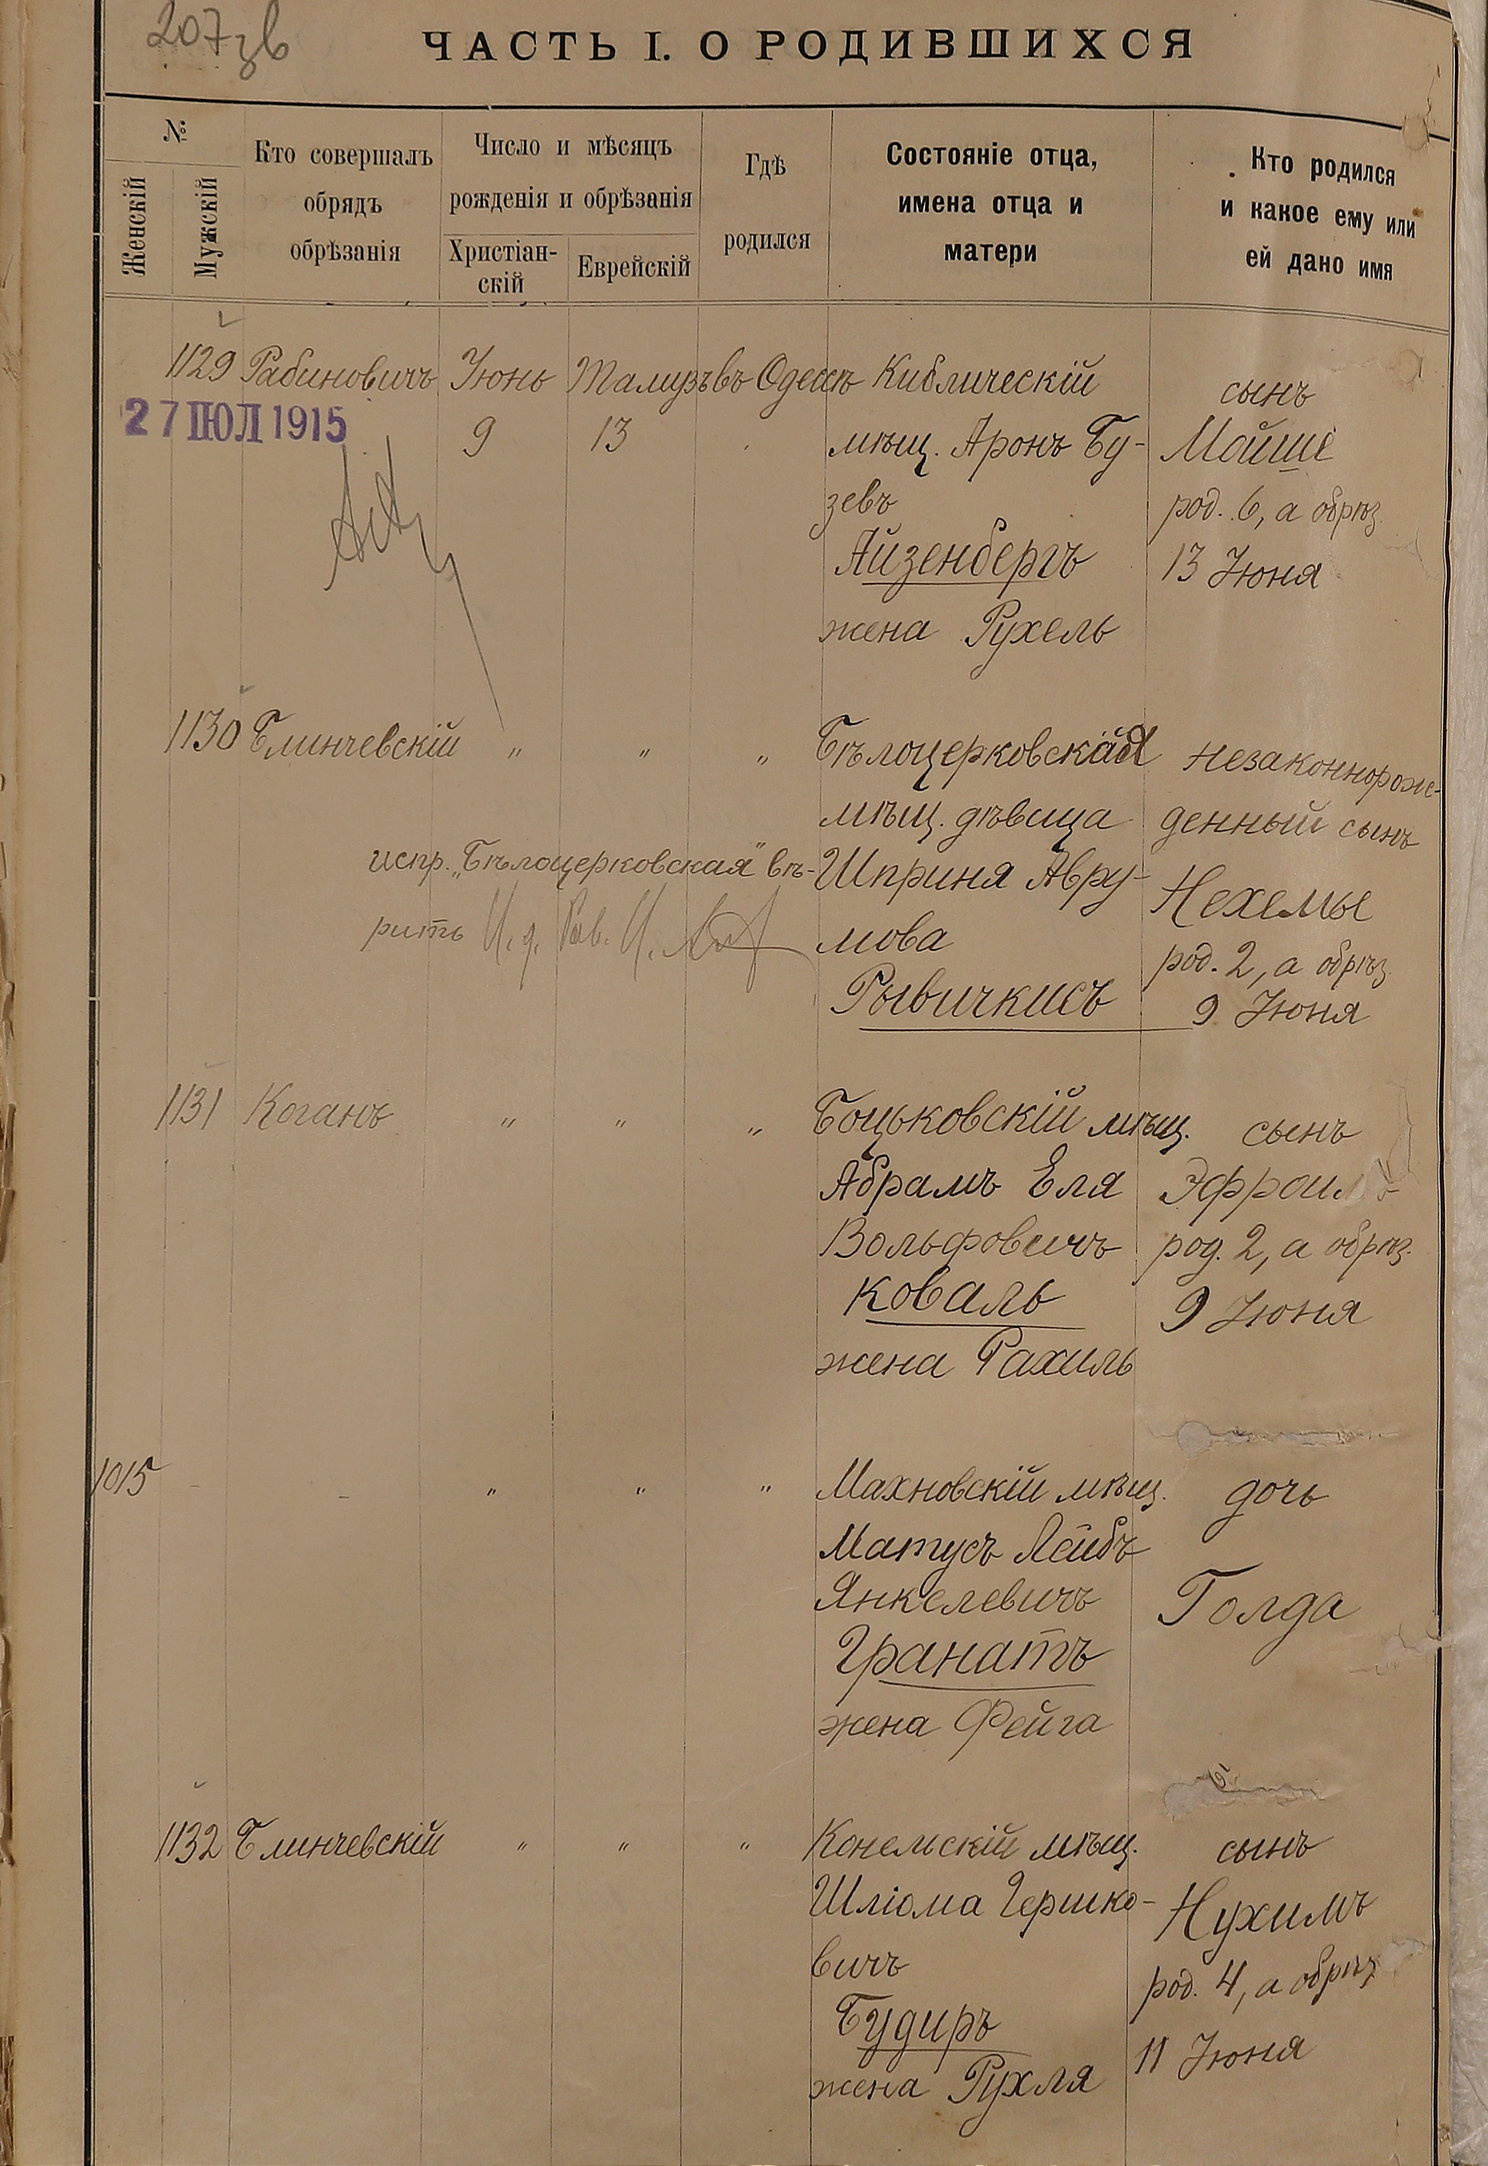 207 зв
ЧАСТЬ I. О РОДИВШИХСЯ
№
Женскій
Мужскій
Кто совершалъ
обрядъ
обрѣзанія
Число и мѣсяцъ
рожденія и обрѣзанія
Христіан-
скій
Еврейскій
Гдѣ
родился
Состояніе отца,
имена отца и
матери
Кто родился
и какое ему или
ей дано имя
1129 Рабиновичъ Іюнь Тамузъ въ Одессѣ Киблическій сынъ
27 ІЮЛ 1915 9 13 мѣщ. Аронъ Бу- Мойше
зевъ род. 6, а обрѣз.
Айзенбергъ 13 Іюня
жена Рухель
1130 Блинчевскій " " " Бѣлоцерковская незаконнорож-
мѣщ. дѣвица денный сынъ
испр. „Бѣлоцерковская" вѣ- Шприня Авру- Нехемье
рить И. д. Рав. мова род. 2, а обрѣз.
Рывичкисъ 9 Іюня
1131 Коганъ " " " Боцьковскій мѣщ. сынъ
Абрамъ Еля Эфроимъ
Вольфовичъ род. 2, а обрѣз.
Коваль 9 Іюня
жена Рахиль
1015 - - " " " Махновскій мѣщ. дочь
Матусъ Лейбъ
Янкелевичъ Голда
Гранатъ
жена Фейга
1132 Блинчевскій " " " Конельскій мѣщ. сынъ
Шліома Гершко- Нухимъ
вичъ род. 4, а обрѣз
Будиръ 11 Іюня
жена Рухля